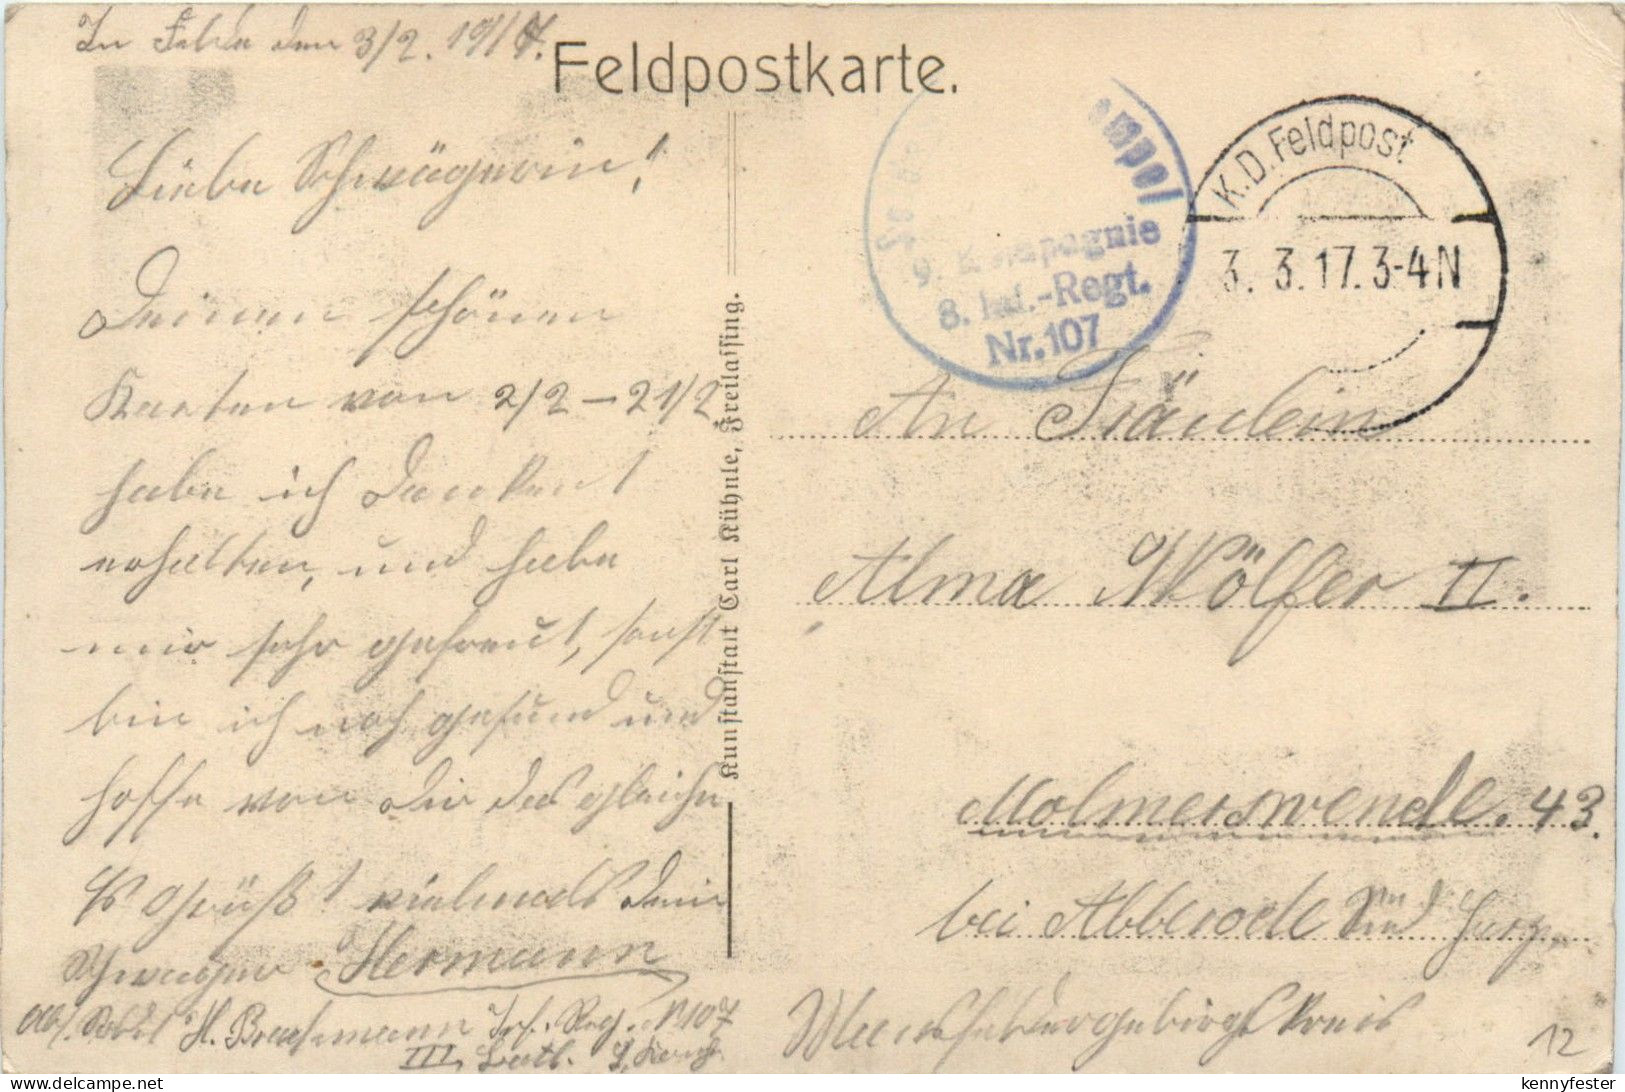 Im Felde den 3/2. 1917.
Feldpostkarte.
Liebe Schwägerin!
Deinen schönen
Karten von 2/2 – 21/2
habe ich dankent
erhalten, und habe
mir sehr gefreut, sonst
bin ich noch gesund und
hoffe von dir das gleiche
Es Grüßt vielmals dein
Schwager Hermann
Abs. H. Inf. Reg. N 107
III. Batl. 9.
Kunstanstalt Carl Kühnle, Freilassing.
9. Kompagnie
8. Inf.-Regt.
Nr. 107
K.D. Feldpost
3. 3. 17. 3-4 N
An Fräulein
Alma Wölfer II.
Molmerswende. 43.
bei Abberode Süd Harz
Mansfeldergebirgskreis
12
kennyfester